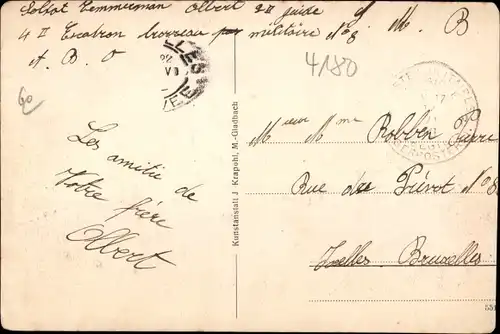 Soldat Temmerman Albert 2 II guide
4 II Escadron bureau par militaire N°8 M. B
A. B. O
4180
60
Les amitié de
Votre frère
Albert
Kunstanstalt J. Krapohl, M.-Gladbach
Mieur Mme Robben Pierre
Rue du Prévot N°8
Ixelles Bruxelles